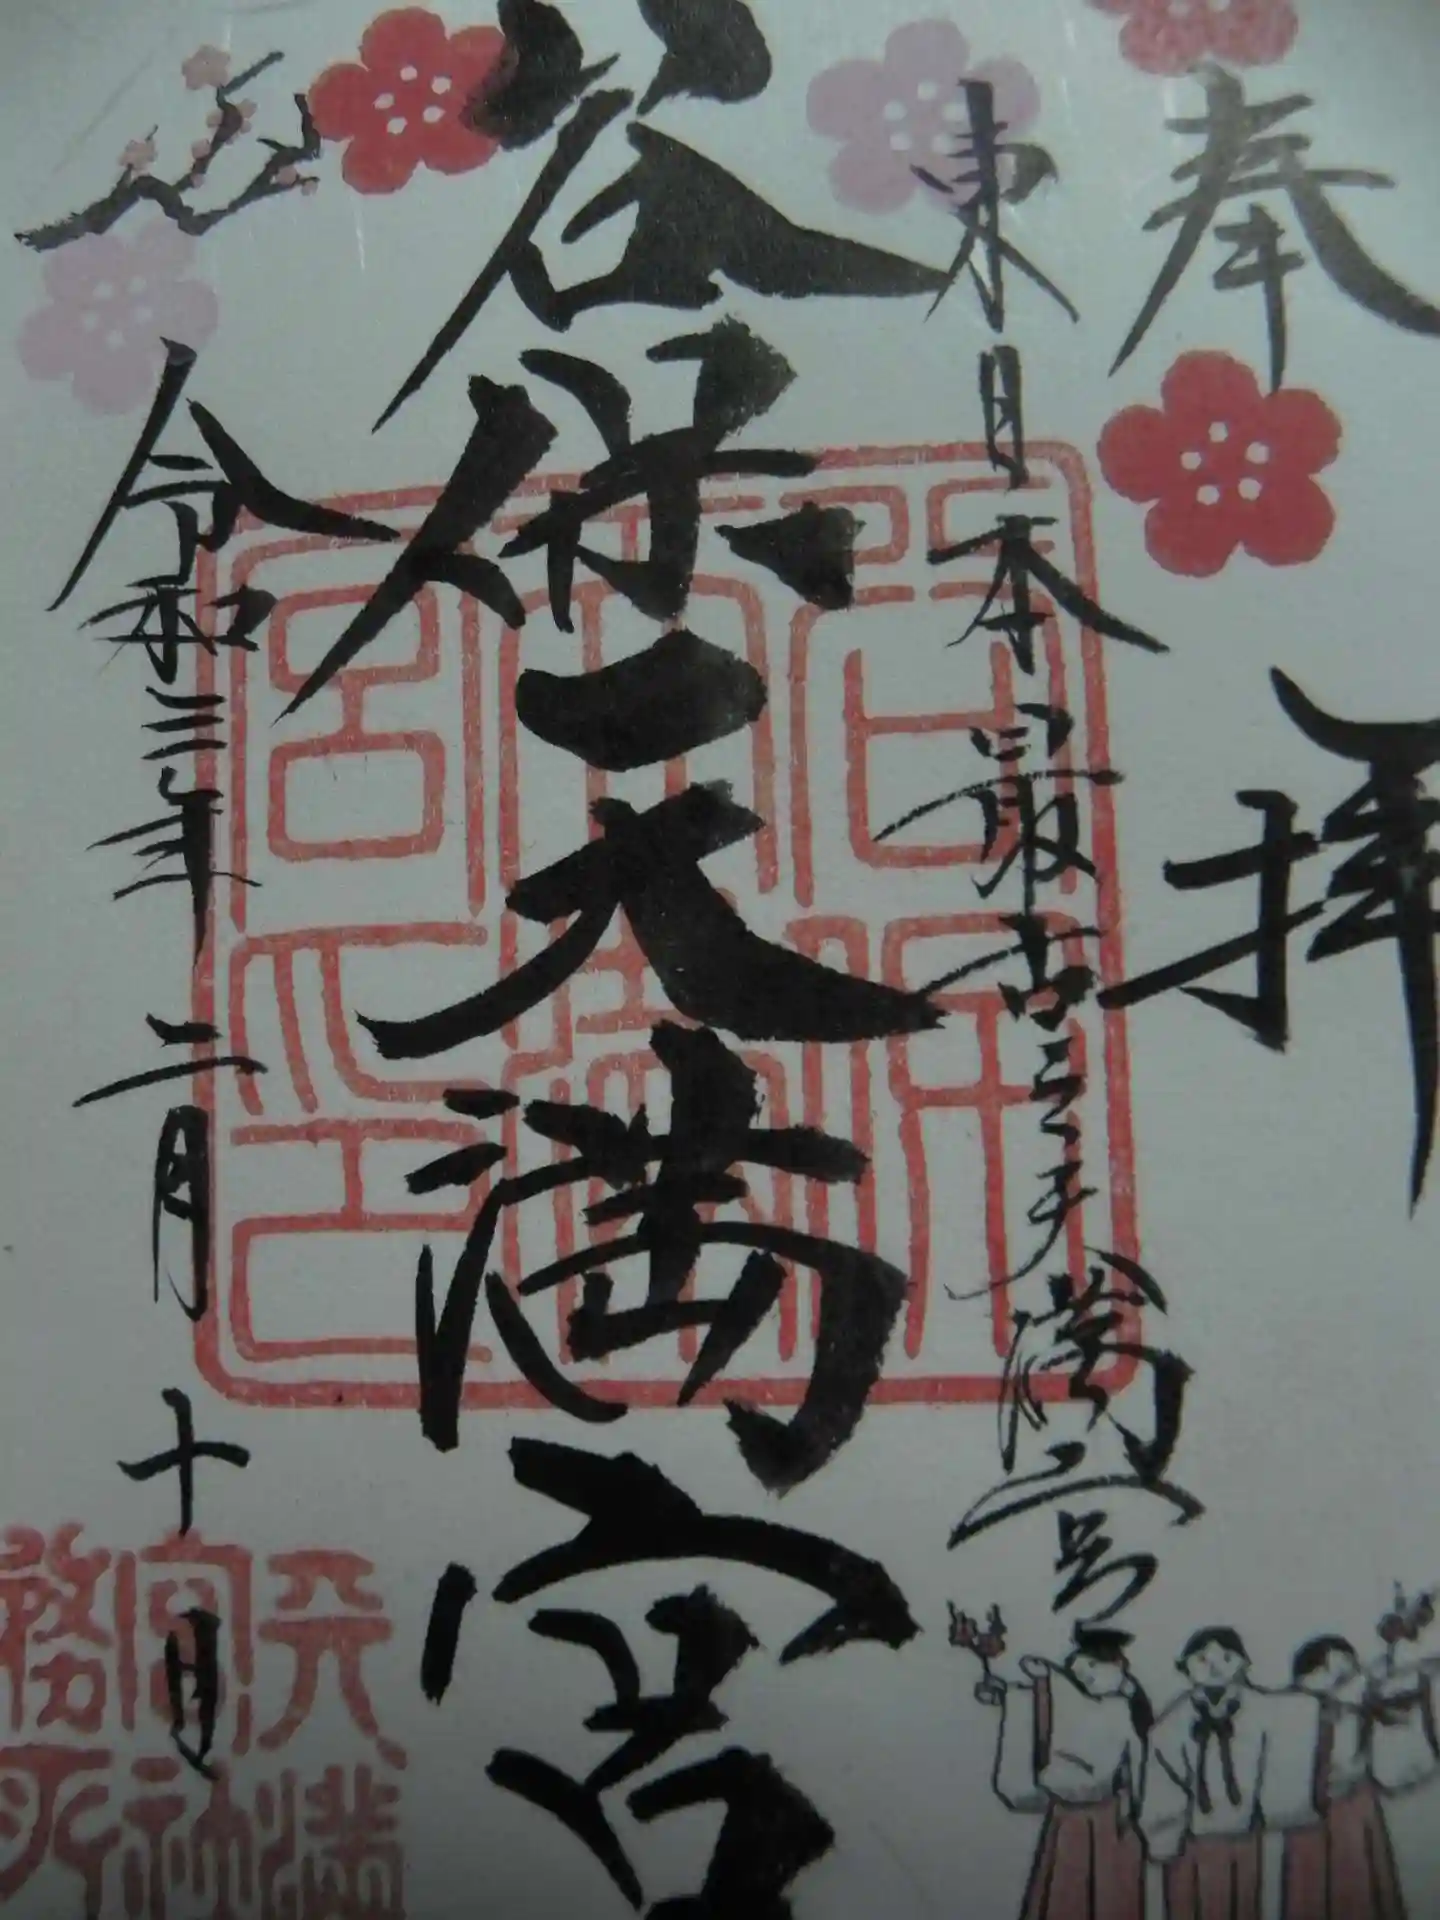 奉拝
東日本最古之天満宮
谷保天満宮
令和三年二月十日
天満
宮社
務所